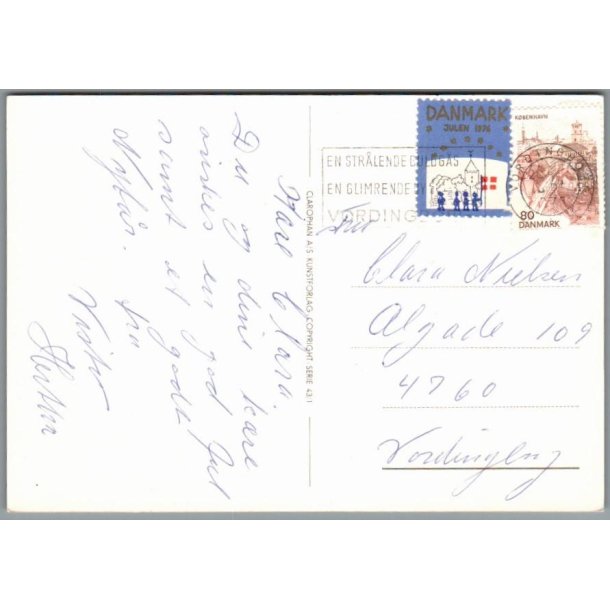 Kære Clara.
Du og dine kære
ønskes en god Jul
samt et godt
Nytår.
fra
Hertha
CLAROPHAN A/S KUNSTFORLAG - COPYRIGHT SERIE 43:1
DANMARK
JULEN 1976
KØBENHAVN
80
DANMARK
EN STRÅLENDE GULDGÅS
EN GLIMRENDE BY
VORDING
VORDINGBORG
Fru
Clara Nielsen
Algade 109
4760
Vordingborg